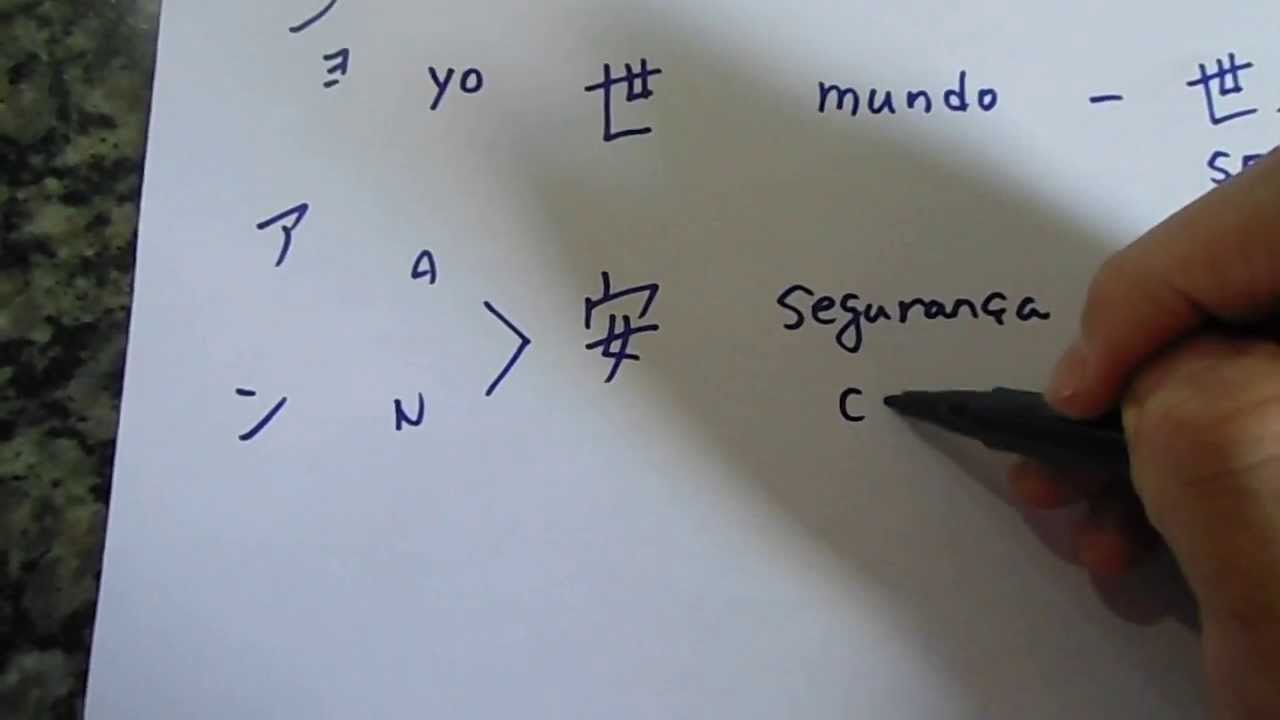 ヨ yo 世 mundo - 世
ア A
安 segurança
ン N
C